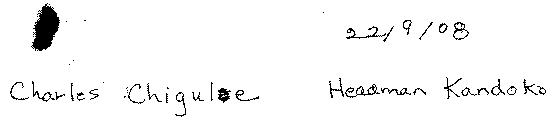 22/9/08
Charles Chigulse Headman Kandoko